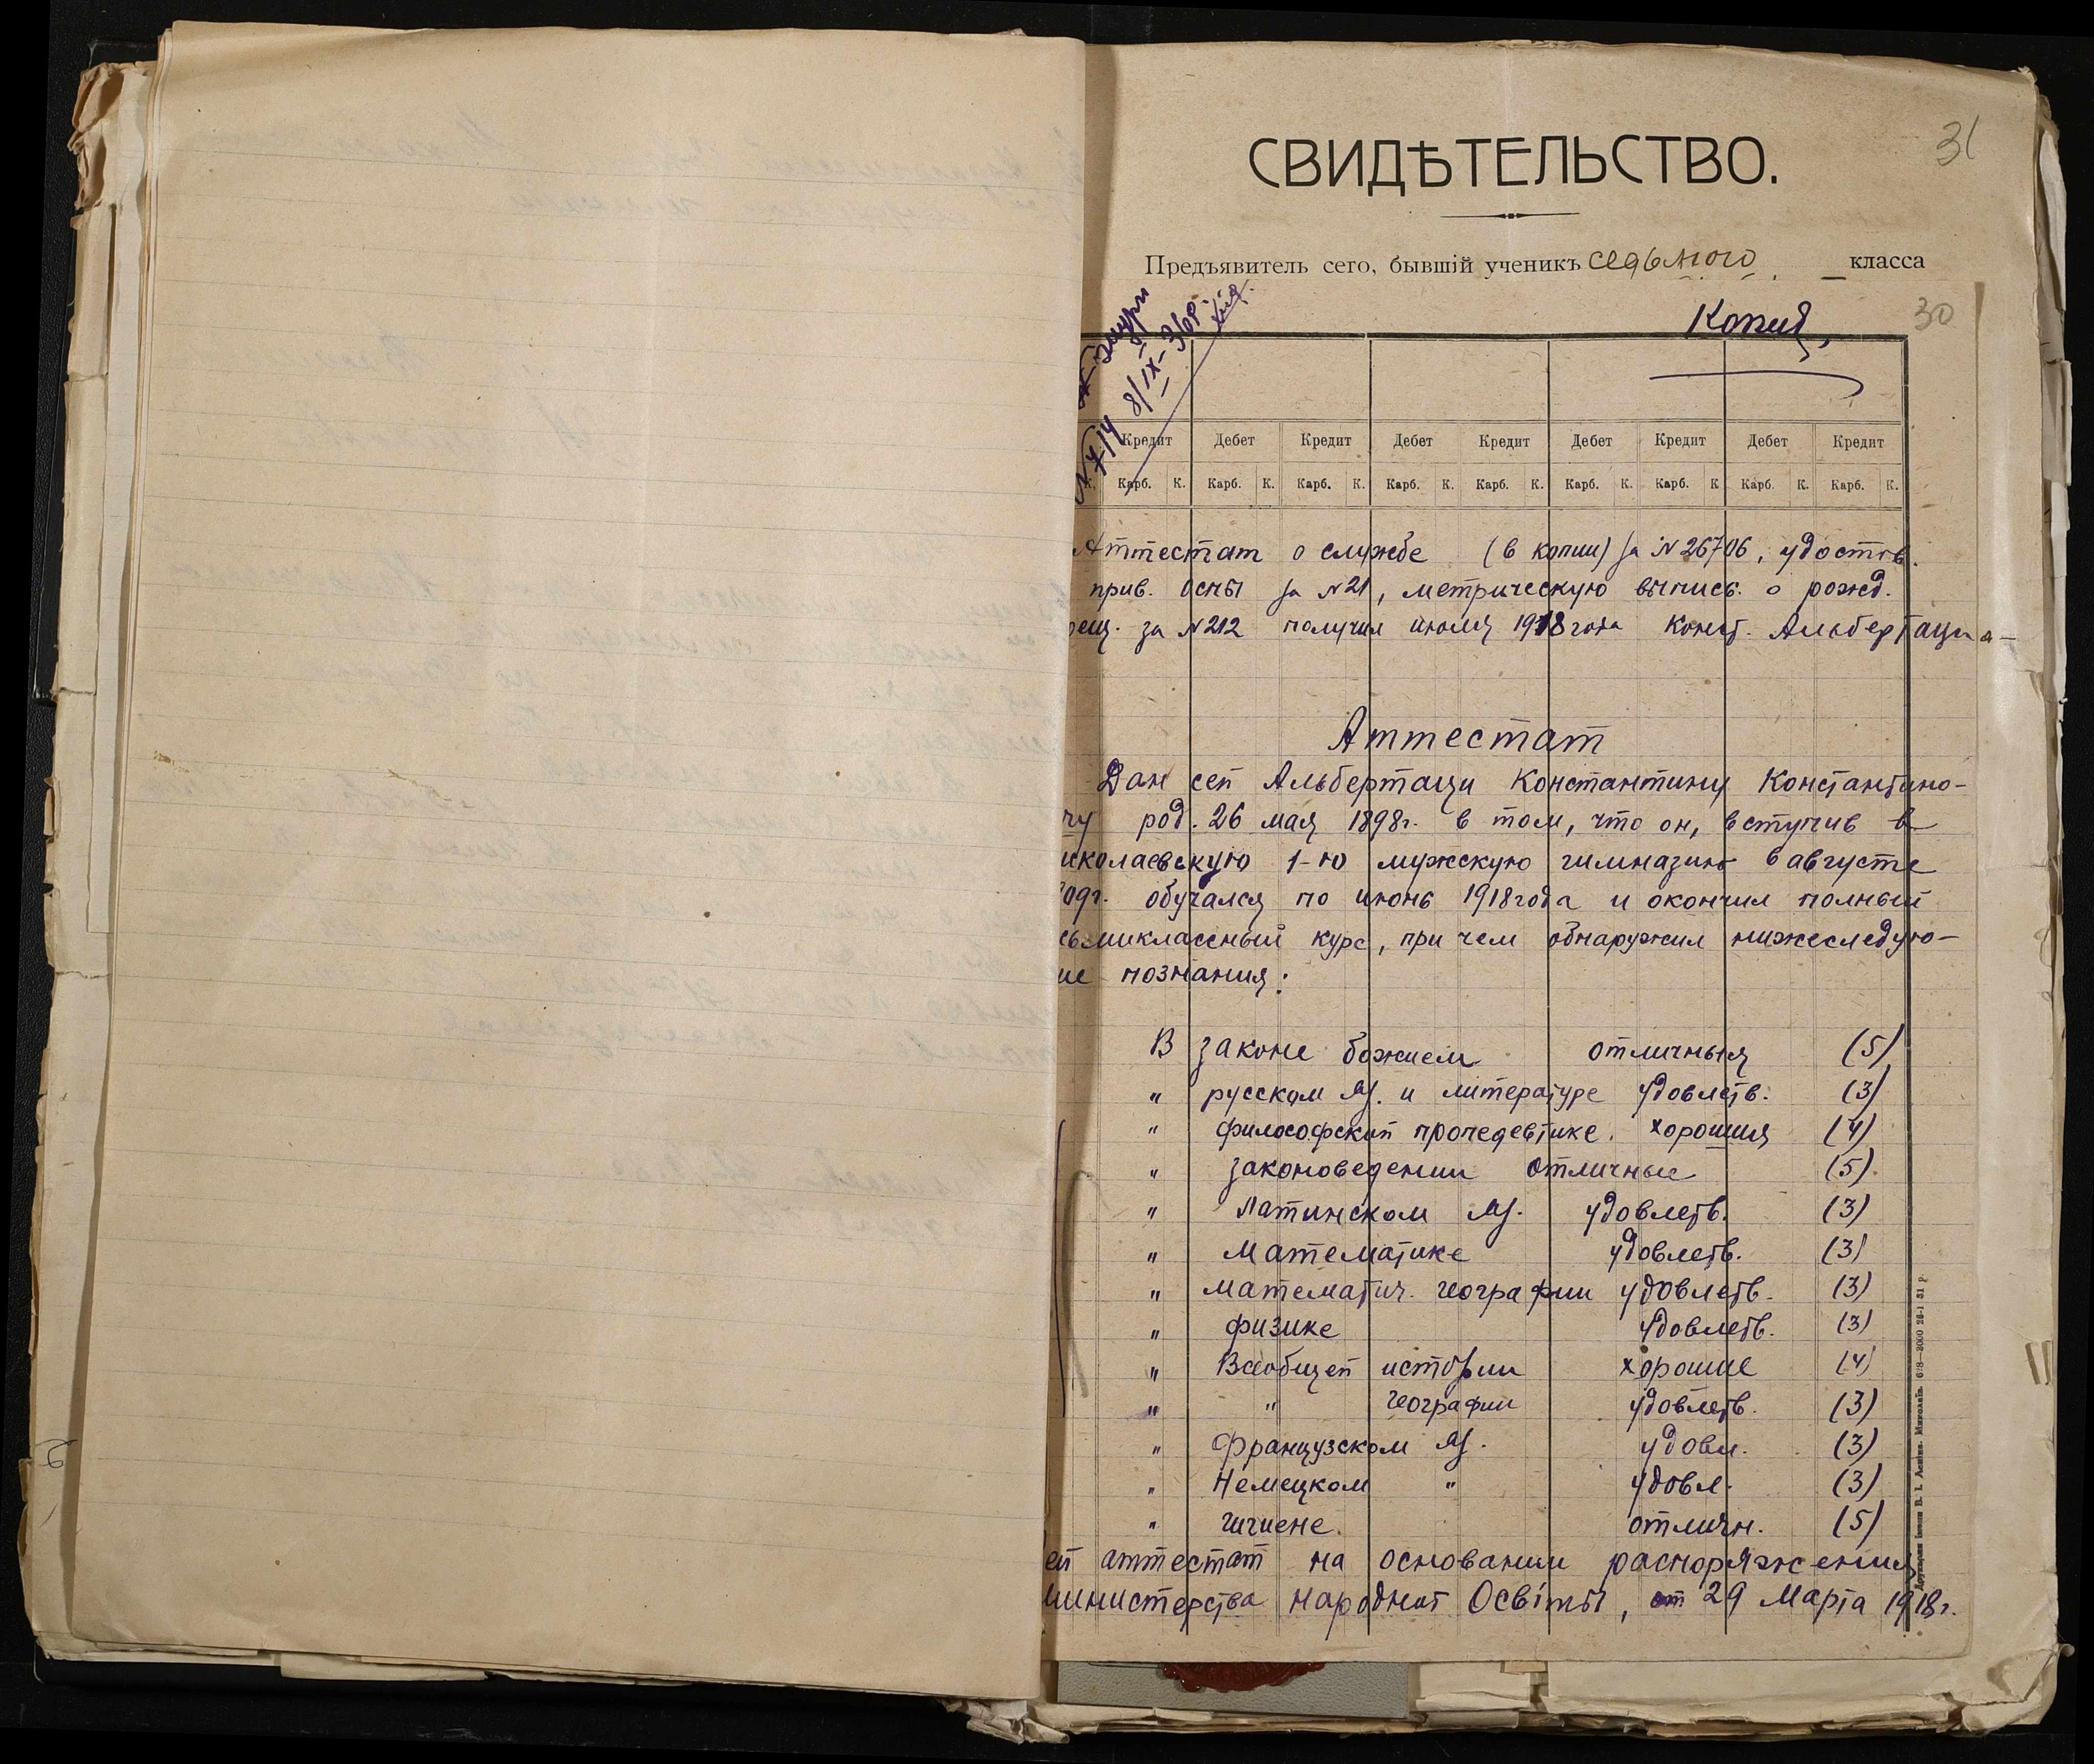 31
СВИДѢТЕЛЬСТВО.
Предъявитель сего, бывшій ученикъ седьмого класса
30
Копия
N 714 8/IX-36г.
Кредит Дебет Кредит Дебет Кредит Дебет Кредит Дебет Кредит
К. Карб. К. Карб. К. Карб. К. Карб. К. Карб. К. Карб. К. Карб. К. Карб. К. Карб. К.
Аттестат о службе (в копии) за N 26706, удостов.
прив. оспы за N 21, метрическую выпись. о рожд.
рещ. за N 212 получил июля 1918 года Конст. Альбертаци
Аттестат
Дан сей Альбертаци Константину Константино-
чу род. 26 мая 1898г. в том, что он, вступив в
иколаевскую 1-ю мужскую гимназию в августе
909г. обучался по июнь 1918 года и окончил полный
сьмиклассный курс, при чем обнаружил нижеследую-
ие познания:
В законе божием отличныя (5)
" русском яз. и литературе удовлетв. (3)
" философской пропедевтике. хорошия (4)
" законоведении отличные (5).
" Латинском яз. удовлетв. (3)
" Математике удовлетв. (3)
" математич. географии удовлетв. (3)
" физике удовлетв. (3)
" Всеобщей истории хорошие (4)
" " географии удовлетв. (3)
" Французском яз. удовл. (3)
" Немецком " удовл. (3)
" гигиене. отличн. (5)
ей аттестат на основании распоряжения
министерства народной Освiты, от 29 Марта 1918г.